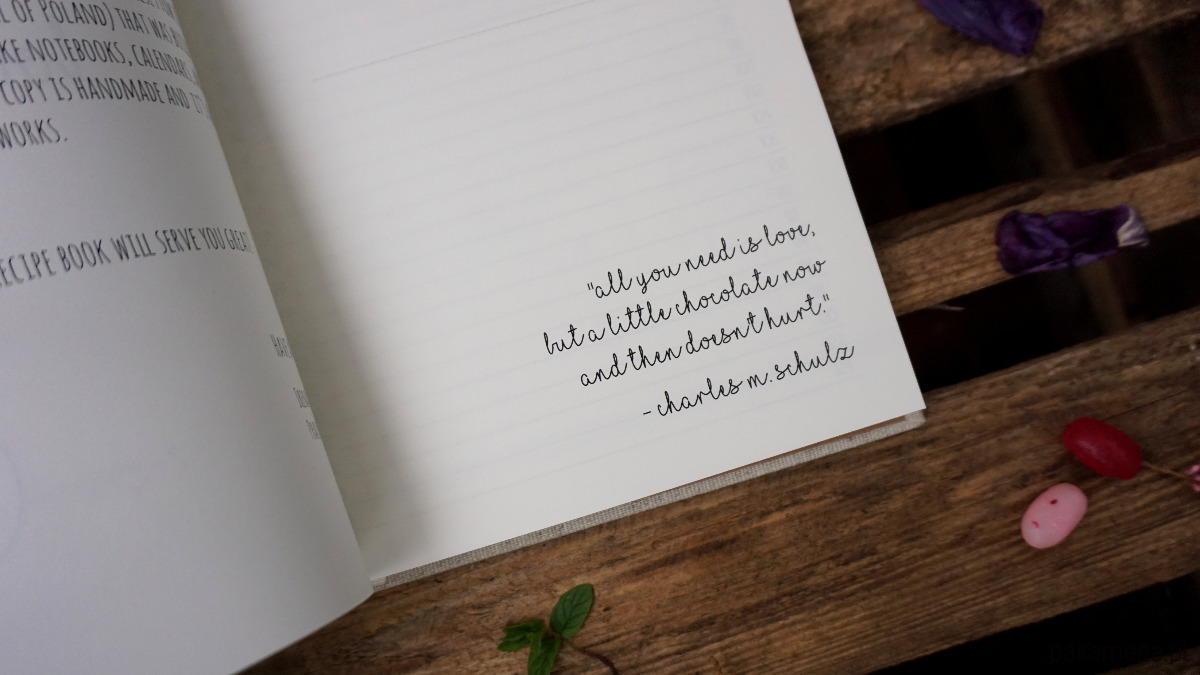 L OF POLAND) THAT WAS
KE NOTEBOOKS, CALENDARS
COPY IS HANDMADE AND IT
WORKS.
RECIPE BOOK WILL SERVE YOU GREAT
"all you need is love,
but a little chocolate now
and then doesn't hurt."
- charles m. schulz